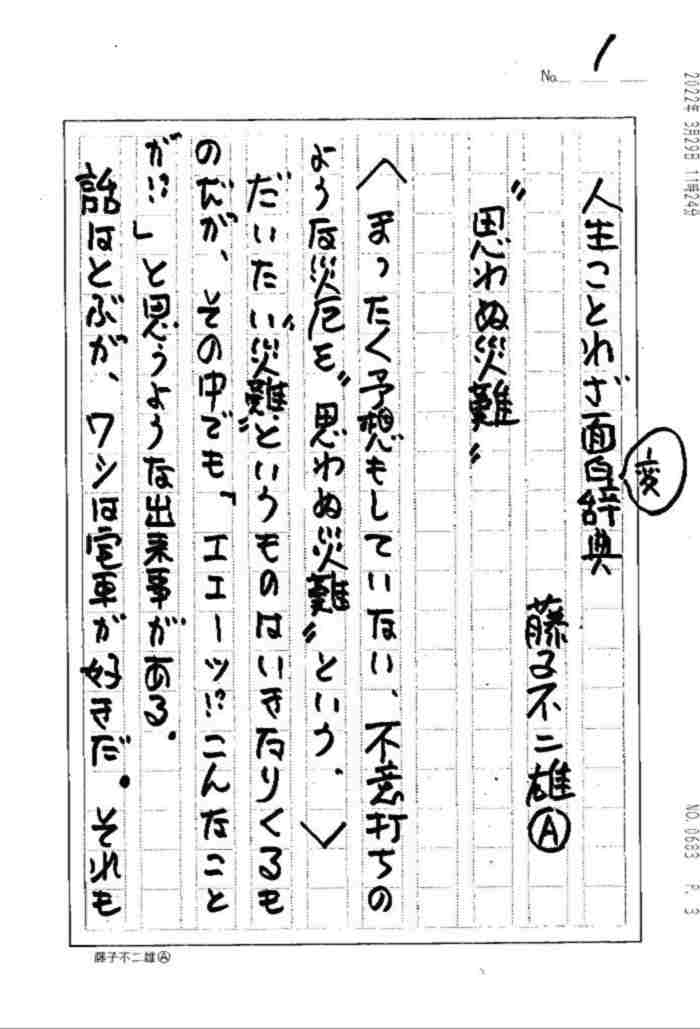 No. 1
人生ことわざ面白辞典
変
藤子不二雄Ⓐ
〝思わぬ災難〟
〈まったく予想もしていない、不意打ちの
ような災厄を〝思わぬ災難〟という。〉
だいたい〝災難〟というものはいきなりくるも
のだが、その中でも「エエーッ!?こんなこと
が!?」と思うような出来事がある。
話はとぶが、ワシは電車が好きだ。それも
藤子不二雄Ⓐ
2022年 3月29日 11時24分
NO.0683 P. 3